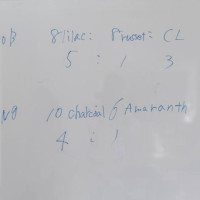 OB 8 lilac: 1 russet: CL
5 : 1 3
NB 10 charcoal 6 Amaranth
4 : 1